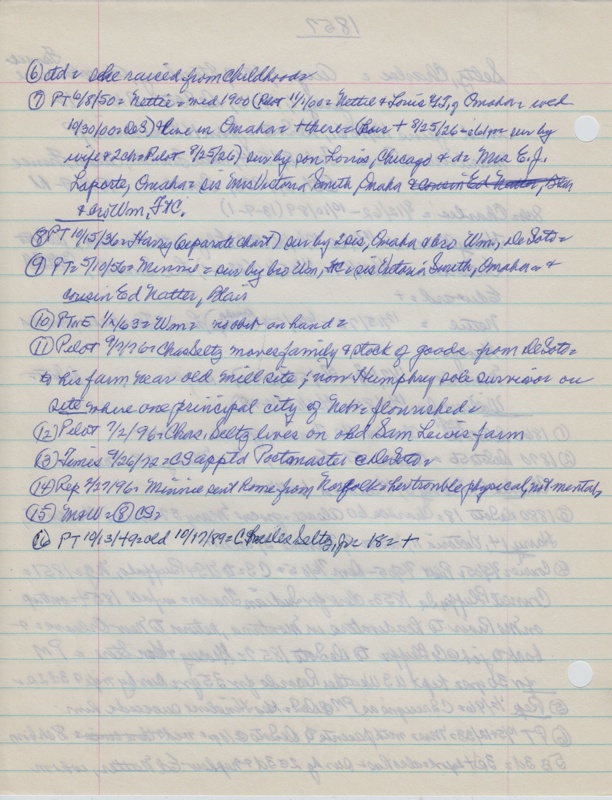 1857
⑥ dd = she raised from Childhood =
⑦ PT 6/8/50 = Nettie = mvd 1900 (Pilot 1/1/00 = Nettie & Louis of Omaha = wed
10/30/00 = DeS) & live in Omaha = + there = 8/25/26 = sur by
wife & 2 ch = Pilot 8/25/26) sur by son Louis, Chicago & d = Mrs E. J.
Laporte, Omaha = sis Mrs Victoria Smith, Omaha & cousin Ed Natter, Blair
& bro Wm, FtC.
⑧ PT 10/15/36 = Harry (separate chart) sur by 2 sis, Omaha & bro Wm, DeSoto =
⑨ PT = 5/10/56 = Minnie = sur by bro Wm, FtC = sis Victoria Smith, Omaha = &
cousin Ed Natter, Blair
⑩ PT + E 1/2/63 = Wm = no obit on hand =
⑪ Pilot 9/7/76 = Chas Seltz moves family & stock of goods from DeSoto =
to his farm near old mill site; now Humphrey sole survivor on
site where one principal city of Neb = flourished =
⑫ Pilot 7/2/96 = Chas. Seltz lives on old Sam Lewis farm
⑬ Times 9/26/72 = CS apptd Postmaster @ DeSoto =
⑭ Rep 2/27/96 = Minnie sent home from Norfolk = her trouble physical, not mental,
⑮ M & W = ⑧ CS =
⑯ PT 10/13/49 = old 10/17/89 = Charles Seltz, jr = 18 = +